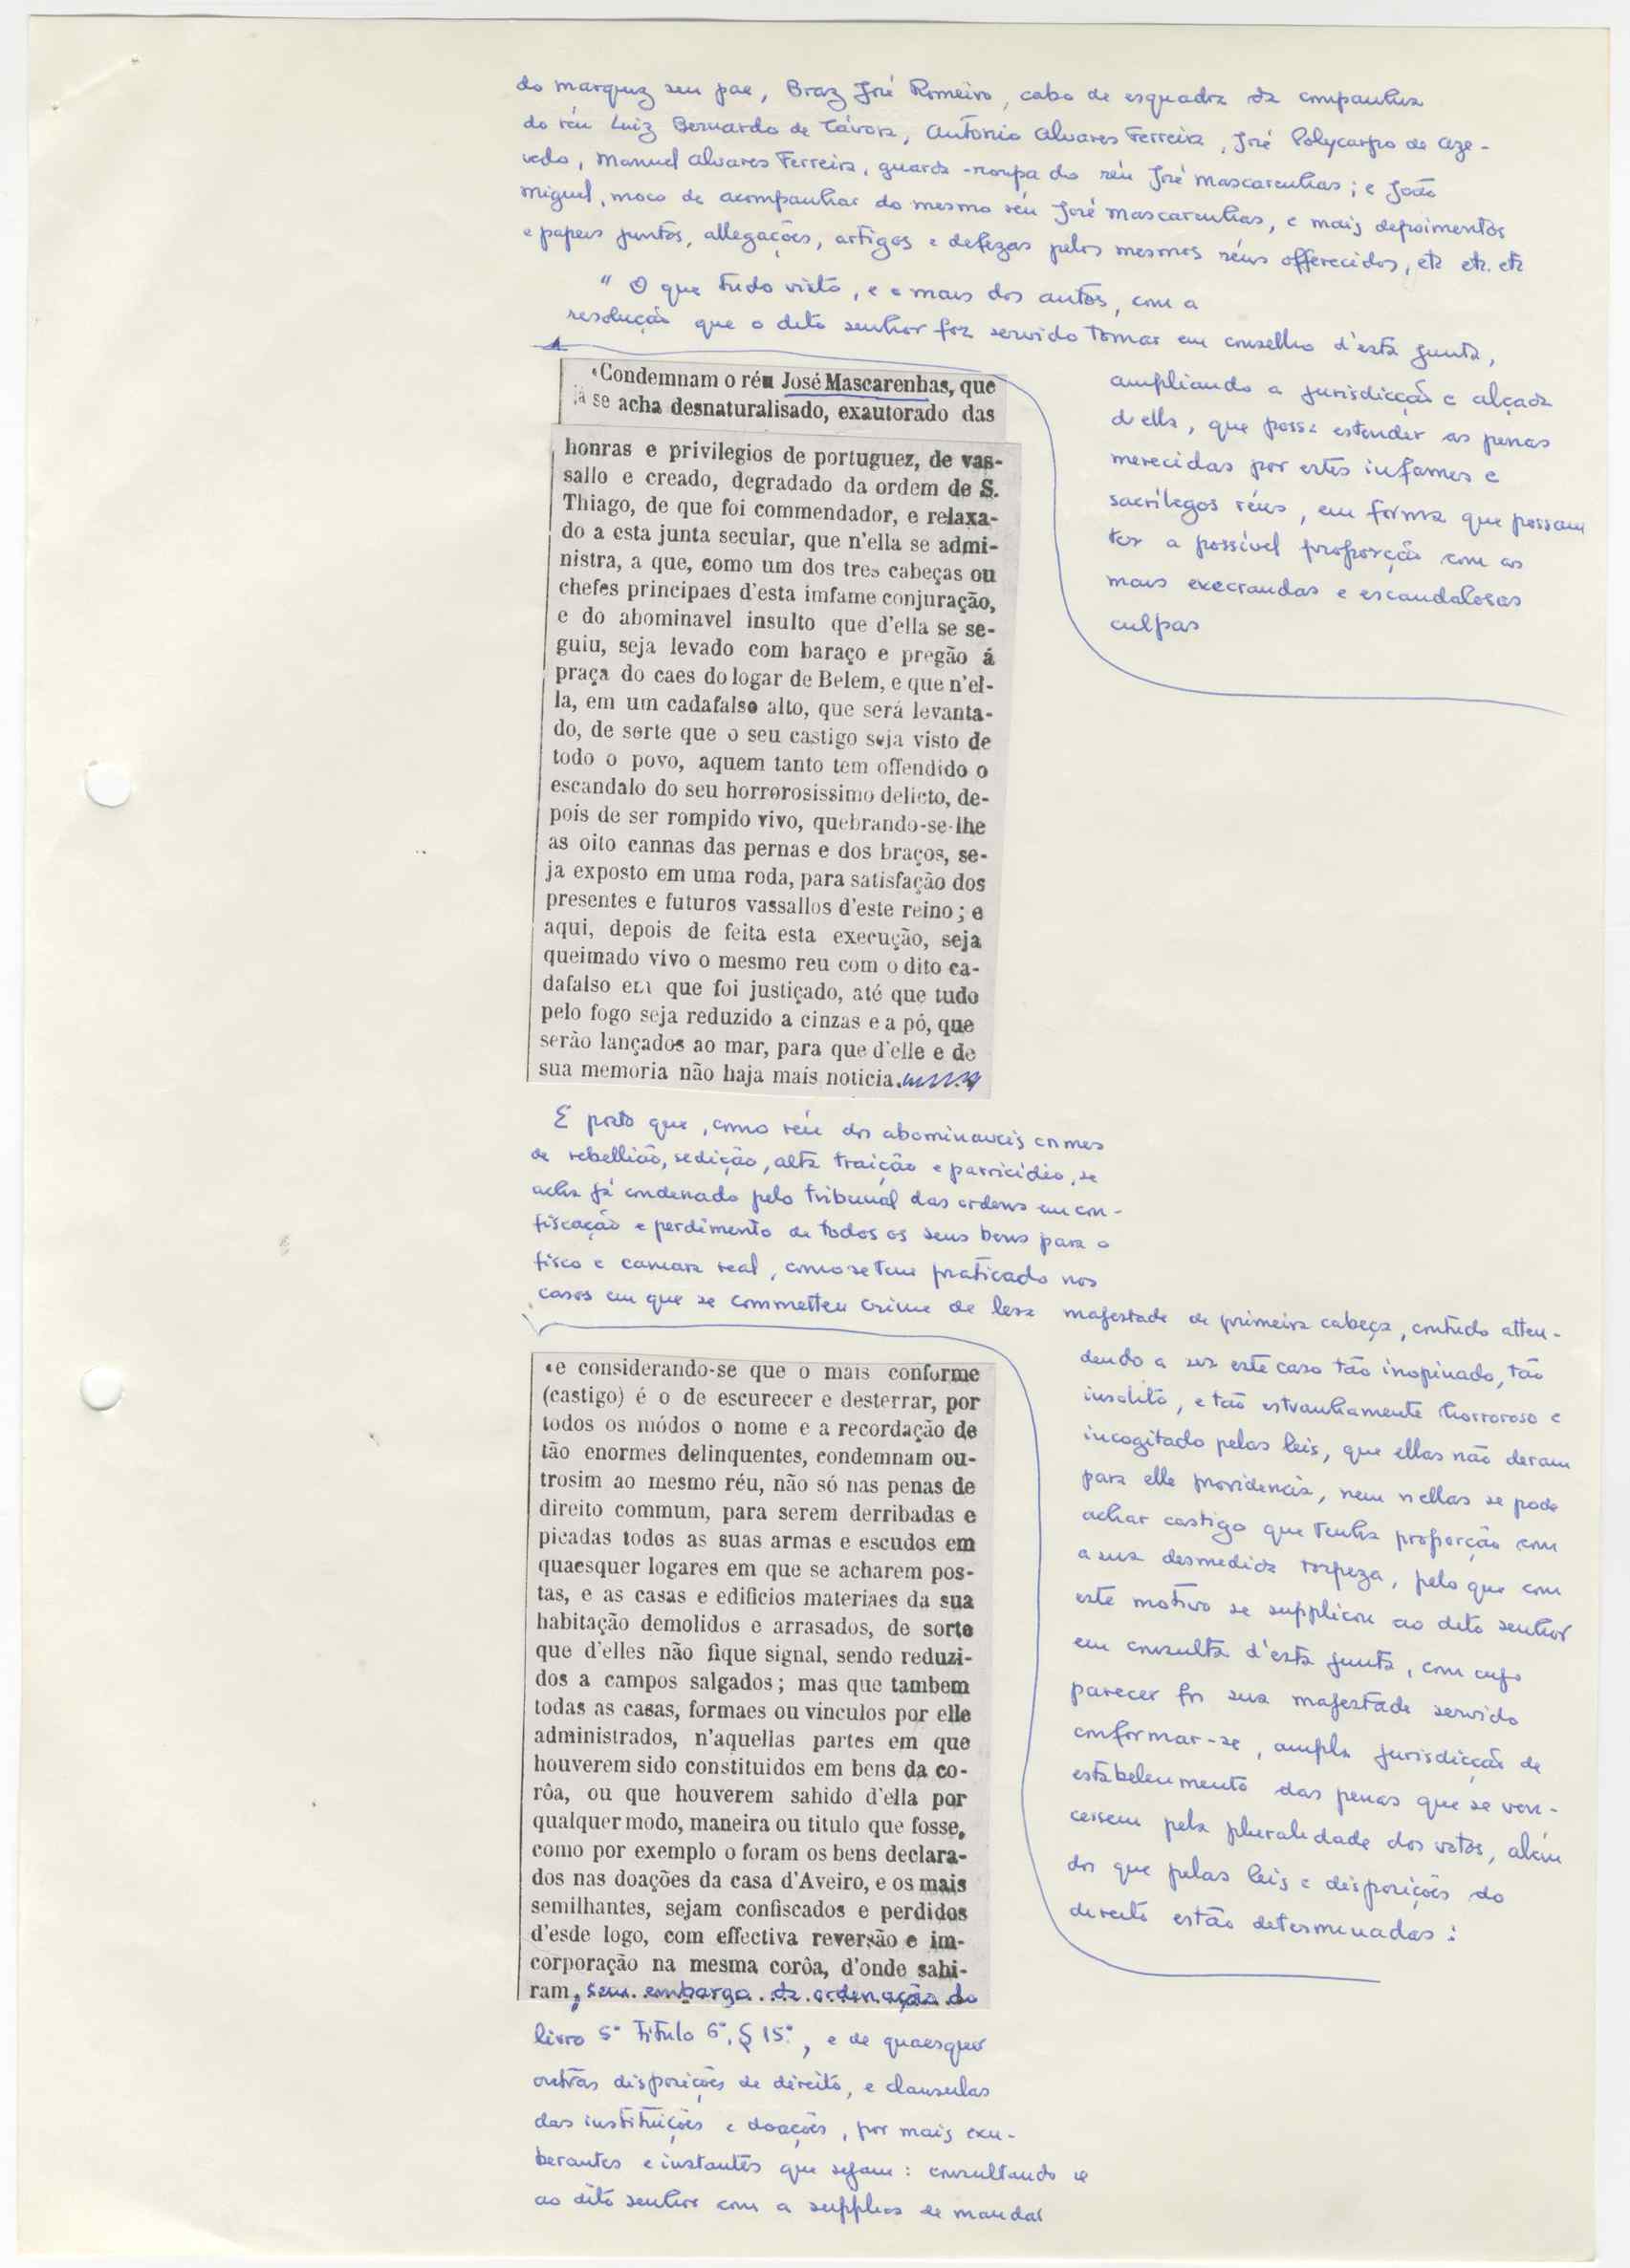 do marquez seu pae, Braz José Romeiro, cabo de esquadra da companhia
do réu Luiz Bernardo de Távora, Antonio Alvares Ferreira, José Polycarpo de Aze-
vedo, Manuel Alvares Ferreira, guarda-roupa do réu José Mascarenhas; e João
Miguel, moco de acompanhar do mesmo réu José Mascarenhas, e mais depoimentos
e papeis juntos, allegações, artigos e defezas pelos mesmos réus offerecidos, etc etc. etc
" O que tudo visto, e o mais dos autos, com a
resolução que o dito senhor foi servido tomar em conselho d'esta junta,
ampliando a jurisdicção e alçada
d'ella, que possa estender as penas
merecidas por estes infames e
sacrilegos réus, em forma que possam
ter a possível proporção com as
mais execrandas e escandalosas
culpas
«Condemnam o réu José Mascarenhas, que
já se acha desnaturalisado, exautorado das
honras e privilegios de portuguez, de vas-
sallo e creado, degradado da ordem de S.
Thiago, de que foi commendador, e relaxa-
do a esta junta secular, que n'ella se admi-
nistra, a que, como um dos tres cabeças ou
chefes principaes d'esta imfame conjuração,
e do abominavel insulto que d'ella se se-
guiu, seja levado com baraço e pregão á
praça do caes do logar de Belem, e que n'el-
la, em um cadafalso alto, que será levanta-
do, de sorte que o seu castigo seja visto de
todo o povo, aquem tanto tem offendido o
escandalo do seu horrorosissimo delicto, de-
pois de ser rompido vivo, quebrando-se-lhe
as oito cannas das pernas e dos braços, se-
ja exposto em uma roda, para satisfação dos
presentes e futuros vassallos d'este reino; e
aqui, depois de feita esta execução, seja
queimado vivo o mesmo reu com o dito ca-
dafalso em que foi justiçado, até que tudo
pelo fogo seja reduzido a cinzas e a pó, que
serão lançados ao mar, para que d'elle e de
sua memoria não haja mais noticia.
E posto que, como réu dos abominaveis crimes
de rebellião, sedição, alta traição e parricidio, se
acha já condenado pelo tribunal das ordens em con-
fiscação e perdimento de todos os seus bens para o
fisco e camara real, como se tem praticado nos
casos em que se commetteu crime de lesa majestade de primeira cabeça, contudo atten-
dendo a ser este caso tão inopinado, tão
insolito, e tão estranhamente horroroso e
incogitado pelas leis, que ellas não deram
para elle providencia, nem n'ellas se pode
achar castigo que tenha proporção com
a sua desmedida torpeza, pelo que com
este motivo se supplicou ao dito senhor
em consulta d'esta junta, com cujo
parecer foi sua majestade servido
conformar-se, ampla jurisdicção de
estabelecimento das penas que se ven-
cessem pela pluralidade dos votos, além
dos que pelas leis e disposições do
direito estão determinadas:
«e considerando-se que o mais conforme
(castigo) é o de escurecer e desterrar, por
todos os módos o nome e a recordação de
tão enormes delinquentes, condemnam ou-
trosim ao mesmo réu, não só nas penas de
direito commum, para serem derribadas e
picadas todos as suas armas e escudos em
quaesquer logares em que se acharem pos-
tas, e as casas e edificios materiaes da sua
habitação demolidos e arrasados, de sorte
que d'elles não fique signal, sendo reduzi-
dos a campos salgados; mas que tambem
todas as casas, formaes ou vinculos por elle
administrados, n'aquellas partes em que
houverem sido constituidos em bens da co-
rôa, ou que houverem sahido d'ella por
qualquer modo, maneira ou titulo que fosse,
como por exemplo o foram os bens declara-
dos nas doações da casa d'Aveiro, e os mais
semilhantes, sejam confiscados e perdidos
d'esde logo, com effectiva reversão e im-
corporação na mesma corôa, d'onde sahi-
ram, sem embargo da ordenação do
livro 5º Titulo 6º. § 15º, e de quaesquer
outras disposições de direito, e clausulas
das instituições e doações, por mais exu-
berantes e instantes que sejam: consultando se
ao dito senhor com a supplica de mandar